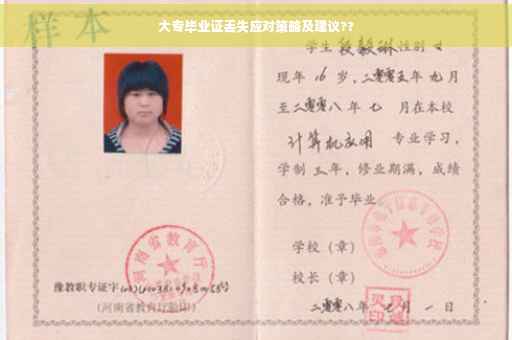 大专毕业证丢失应对策略及建议??
样本
学生 段毅琳 性别 女
现年 16 岁，二零零五年 九 月
至二零零八年 七 月在本校
计算机应用 专业学习，
学制 三 年，修业期满，成绩
合格，准予毕业
学校（章）
校长（章）
二零零八年 月 一 日
河南省教育厅
豫教职专证字
(河南省教育厅验印)